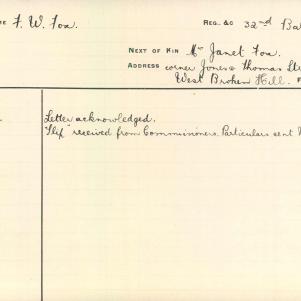 F. W. Fox. REG. &C 32nd Ba
NEXT OF KIN Mrs Janet Fox.
ADDRESS corner Jones & Thomas
West Broken Hill.
Letter acknowledged.
"Slip" received from Commissioners. Particulars sent